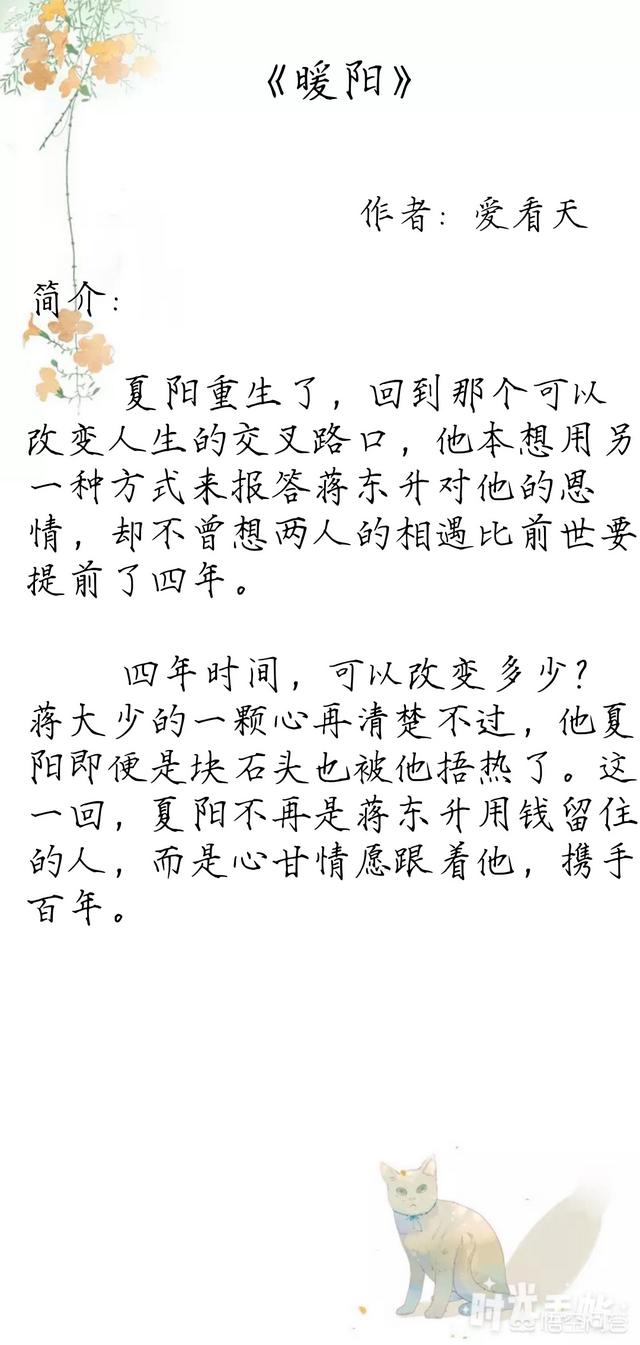 《暖阳》
作者：爱看天
简介：
夏阳重生了，回到那个可以
改变人生的交叉路口，他本想用另
一种方式来报答蒋东升对他的恩
情，却不曾想两人的相遇比前世要
提前了四年。
四年时间，可以改变多少？
蒋大少的一颗心再清楚不过，他夏
阳即便是块石头也被他捂热了。这
一回，夏阳不再是蒋东升用钱留住
的人，而是心甘情愿跟着他，携手
百年。
时光手帐
悟空问答